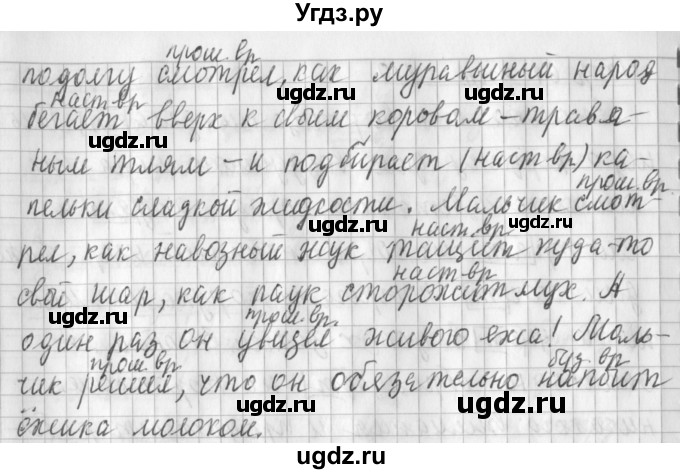 Угдз.ру
прош.вр
подолгу смотрел, как муравьиный народ
наст.вр
бегает вверх к своим коровам – травя-
ным тлям – и подбирает (наст вр) ка-
прош.вр.
пельки сладкой жидкости. Мальчик смот-
наст.вр
рел, как навозный жук тащит куда-то
наст.вр
свой шар, как паук сторожит мух. А
прош.вр.
один раз он увидел живого ежа! Маль-
прош.вр буд.вр
чик решил, что он обязательно напоит
ёжика молоком.
ugdz.ru ugdz.ru
ugdz.ru ugdz.ru
ugdz.ru ugdz.ru
ugdz.ru ugdz.ru
ugdz.ru ugdz.ru
ugdz.ru ugdz.ru